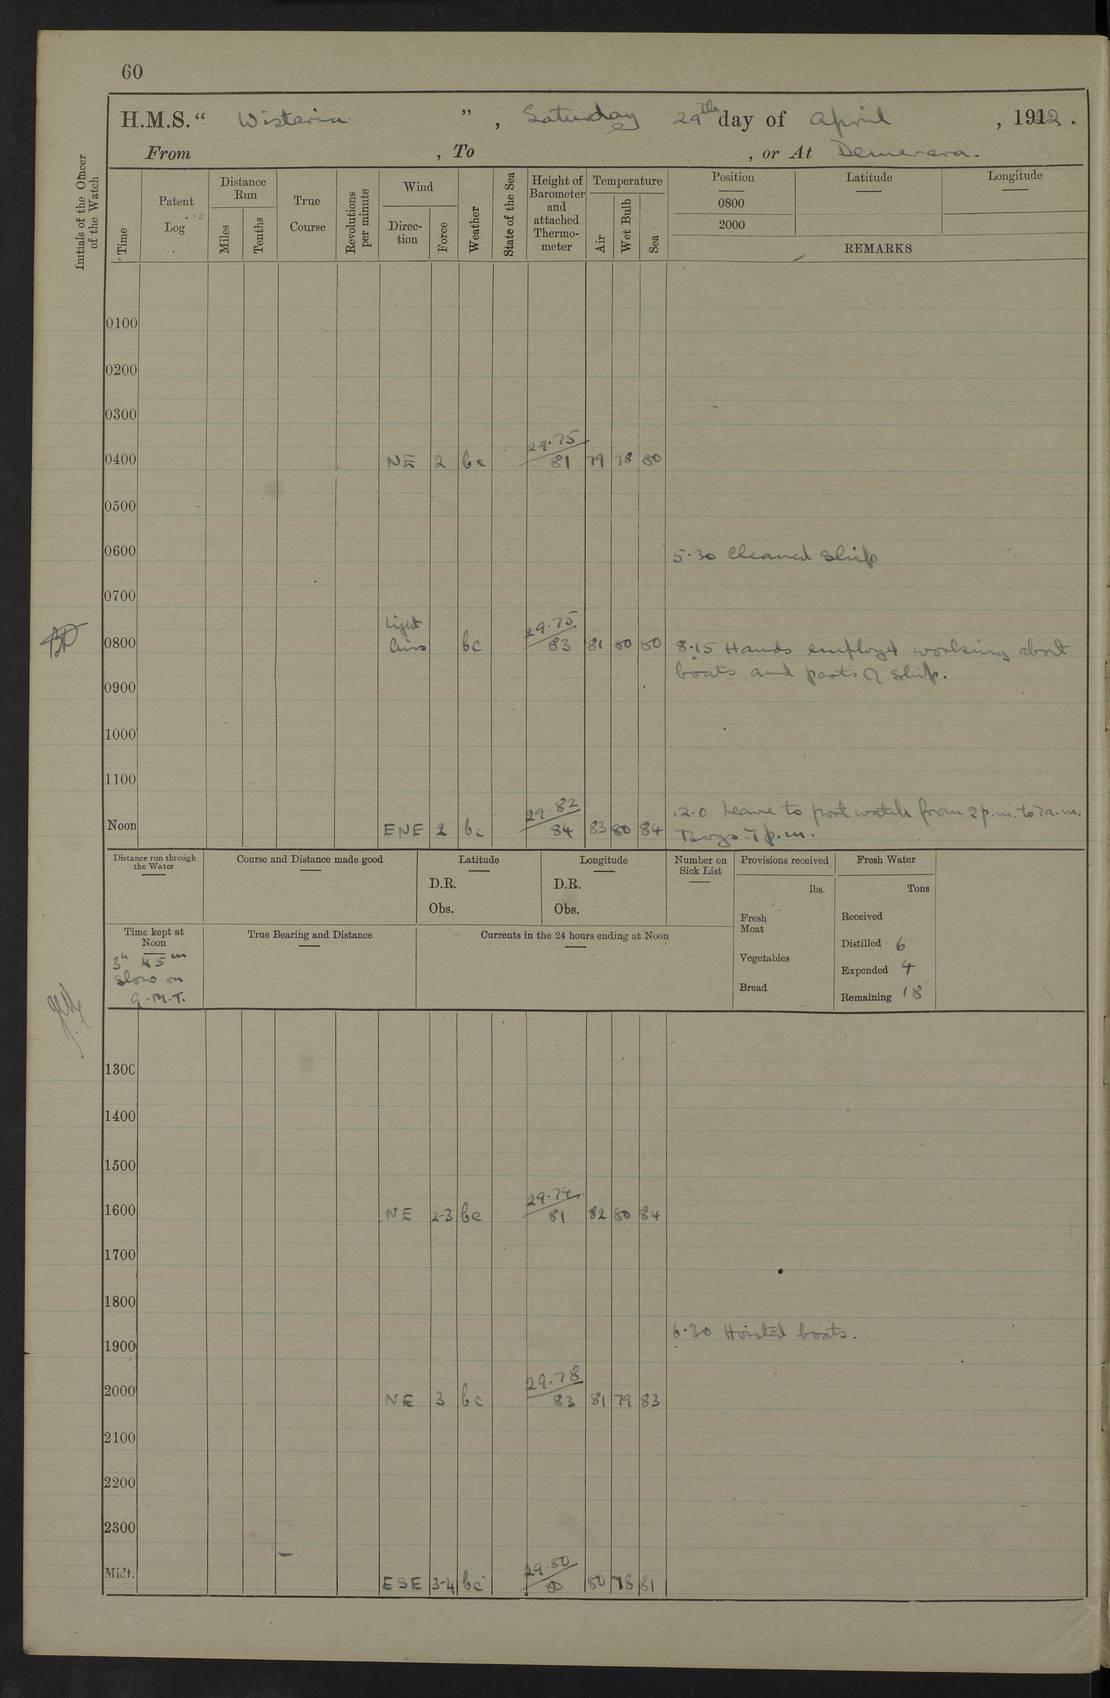 60
H.M.S. “ Wistaria ” , Saturday 29th day of April , 1922 .
From , To , or At Demerara.
Initials of the Officer of the Watch
Time
Patent Log
Distance Run
Miles
Tenths
True Course
Revolutions per minute
Wind
Direc-tion
Force
Weather
State of the Sea
Height of Barometer and attached Thermo-meter
Temperature
Air
Wet Bulb
Sea
Position Latitude Longitude
0800
2000
REMARKS
0100
0200
0300
0400 NE 2 bc 29.75/81 79 78 80
0500
0600 5.30 Cleaned Ship
0700
0800 Light Airs bc 29.75/83 81 80 80 8.15 Hands employed working about
boats and parts of ship.
0900
1000
1100
Noon ENE 2 bc 29.82/84 83 80 84 .2.0 Leave to port watch from 2 p.m. to 7 a.m.
Boys 7 p.m.
Distance run through the Water
Course and Distance made good
Latitude
D.R.
Obs.
Longitude
D.R.
Obs.
Number on Sick List
Provisions received
lbs.
Fresh Meat
Vegetables
Bread
Fresh Water
Tons
Received
Distilled 6
Expended 4
Remaining 18
Time kept at Noon
3h 45m
Slow on
G.M.T.
True Bearing and Distance
Currents in the 24 hours ending at Noon
1300
1400
1500
1600 NE 2-3 bc 29.74/81 82 80 84
1700
1800
6.30 Hoisted boats.
1900
2000 NE 3 bc 29.78/83 81 79 83
2100
2200
2300
Midt. ESE 3-4 bc 29.80/80 80 78 81